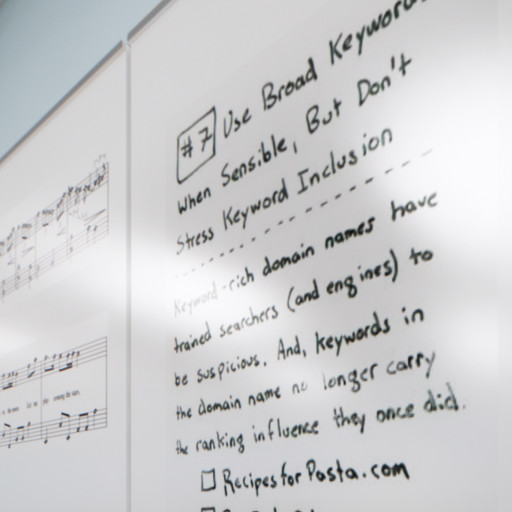 #7 Use Broad Keyword
When Sensible, But Don't
Stress Keyword Inclusion
Keyword-rich domain names have
trained searchers (and engines) to
be suspicious. And, keywords in
the domain name no longer carry
the ranking influence they once did.
RecipesforPasta.com